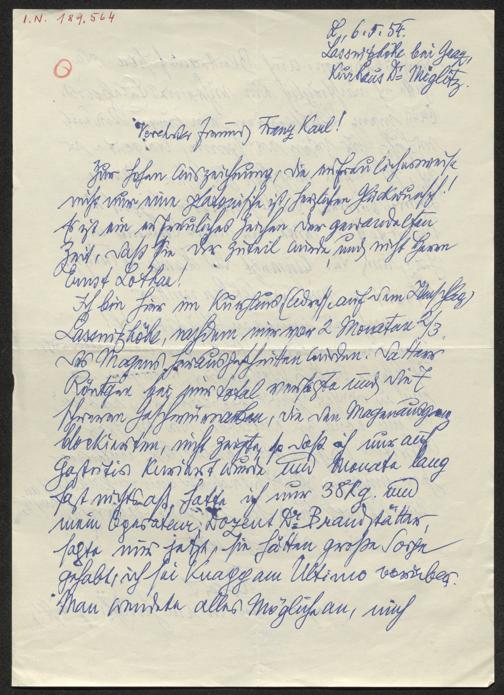 I.N. 189.564
L, 6.5.54.
Lassnitzhöhe bei Graz,
Kurhaus Dr Miglitz.
Verehrter Freund Franz Karl!
Zur hohen Auszeichnung, die erfreulicherweise
nicht nur eine platonische ist, herzlichen Glückwunsch!
Es ist ein erfreuliches Zeichen der gewandelten
Zeit, daß Sie der zuteil wurde, und nicht Herrn
Ernst Lothar!
Ich bin hier im Kurhaus (Adresse auf dem Umschlag)
Lassnitzhöhe, nachdem mir vor 2 Monaten 2/3
des Magens herausgeschnitten wurden. Da der
Röntgen bei mir total versagte und die 7
schweren Geschwüre, die den Magenausgang
blockierten, nicht zeigte, so daß ich nur auf
Gastritis kuriert wurde und Monate lang
fast nichts aß, hatte ich nur 38 kg. und
mein Operateur, Dozent Dr Brandstätter,
sagte mir jetzt, sie hätten große Sorge
gehabt, ich sei knapp am Ultimo vorüber.
Man wendete alles Mögliche an, mich